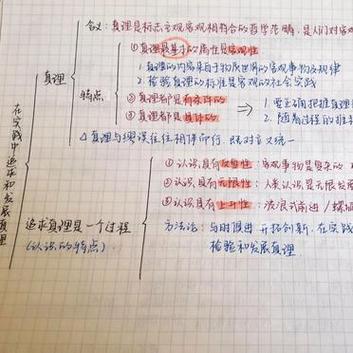 含义：真理是标志主观客观相符合的哲学范畴，是人们对客观
①真理最基本的属性是客观性
1.真理的内容来自于物质世界的客观事物及规律
真理
2.检验真理的标准是客观的社会实践
特点
②真理都是有条件的
1.要正确把握真理
③真理都是具体的
2.随着过程的推移
△真理与谬误往往相伴而行，既对立又统一
在实践中追求和发展真理
①认识具有反复性：客观事物是复杂的
②认识具有无限性：人类认识是无限发展
追求真理是一个过程
③认识具有上升性：波浪式前进/螺旋
(认识的特点)
方法论：与时俱进 开拓创新，在实践
检验和发展真理